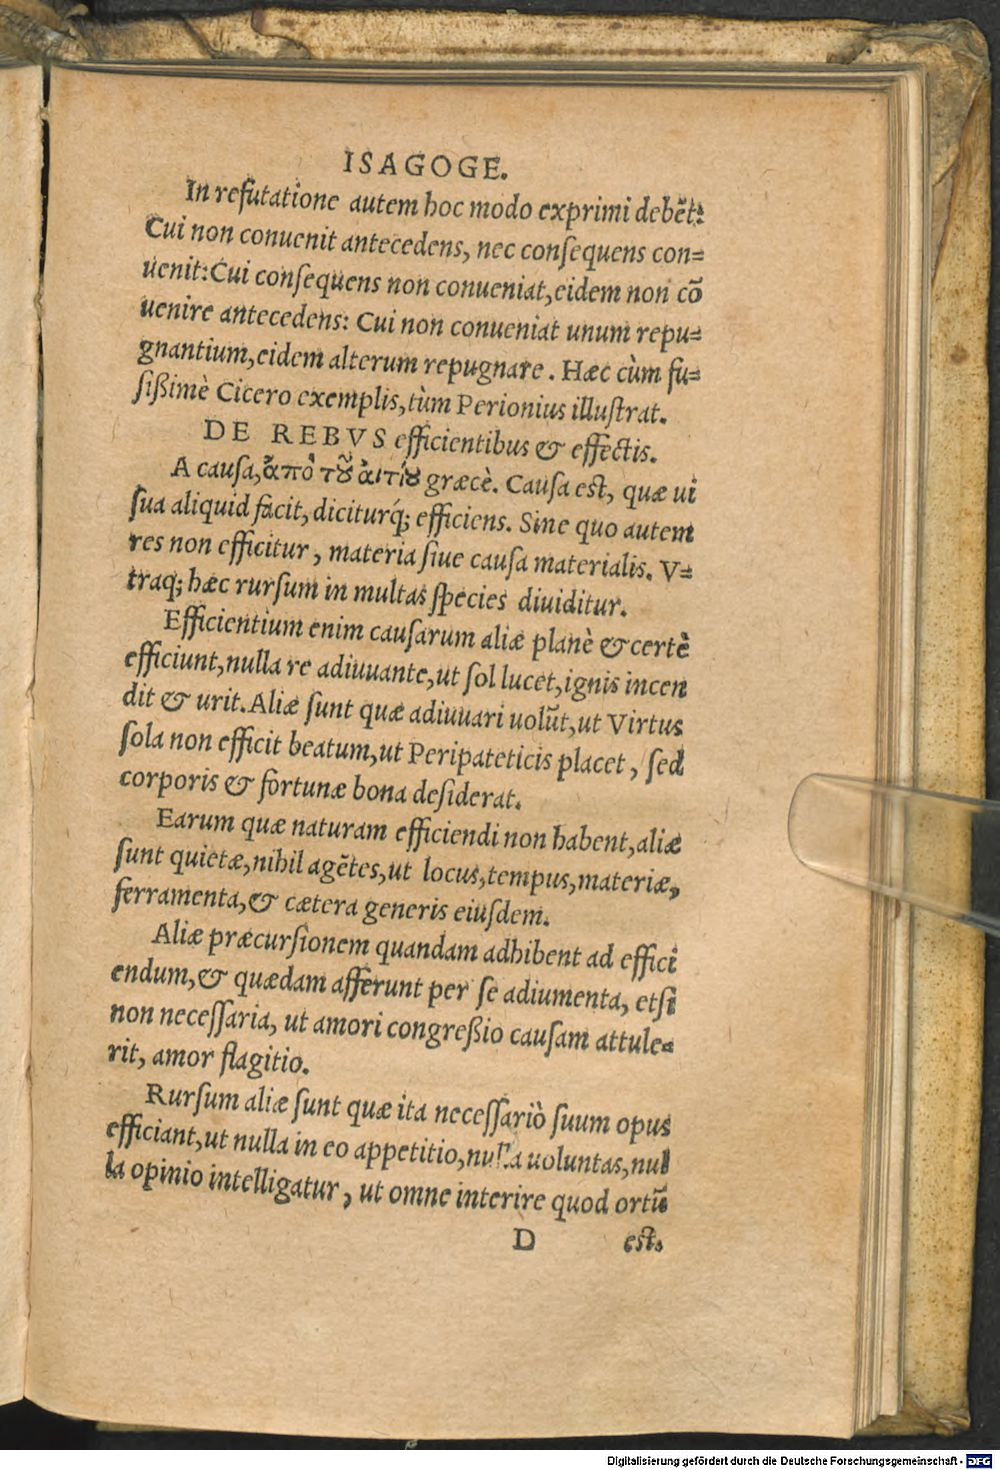 ISAGOGE.
In refutatione autem hoc modo exprimi debēt:
Cui non conuenit antecedens, nec consequens con=
uenit: Cui consequens non conueniat, eidem non cō
uenire antecedens: Cui non conueniat unum repu=
gnantium, eidem alterum repugnare. Hæc cùm fu=
sißimè Cicero exemplis, tùm Perionius illustrat.
DE REBVS efficientibus & effectis.
A causa, ἀπὸ τοῦ αἰτίου græcè. Causa est, quæ ui
sua aliquid facit, diciturq́; efficiens. Sine quo autem
res non efficitur, materia siue causa materialis. V=
traq; hæc rursum in multas species diuiditur.
Efficientium enim causarum aliæ planè & certè
efficiunt, nulla re adiuuante, ut sol lucet, ignis incen
dit & urit. Aliæ sunt quæ adiuuari uolūt, ut Virtus
sola non efficit beatum, ut Peripateticis placet, sed
corporis & fortunæ bona desiderat.
Earum quæ naturam efficiendi non habent, aliæ
sunt quietæ, nihil agētes, ut locus, tempus, materiæ,
ferramenta, & cætera generis eiusdem.
Aliæ præcursionem quandam adhibent ad effici
endum, & quædam afferunt per se adiumenta, etsi
non necessaria, ut amori congreßio causam attule=
rit, amor flagitio.
Rursum aliæ sunt quæ ita necessariò suum opus
efficiant, ut nulla in eo appetitio, nulla uoluntas, nul
la opinio intelligatur, ut omne interire quod ortū
D est.
Digitalisierung gefördert durch die Deutsche Forschungsgemeinschaft - DFG